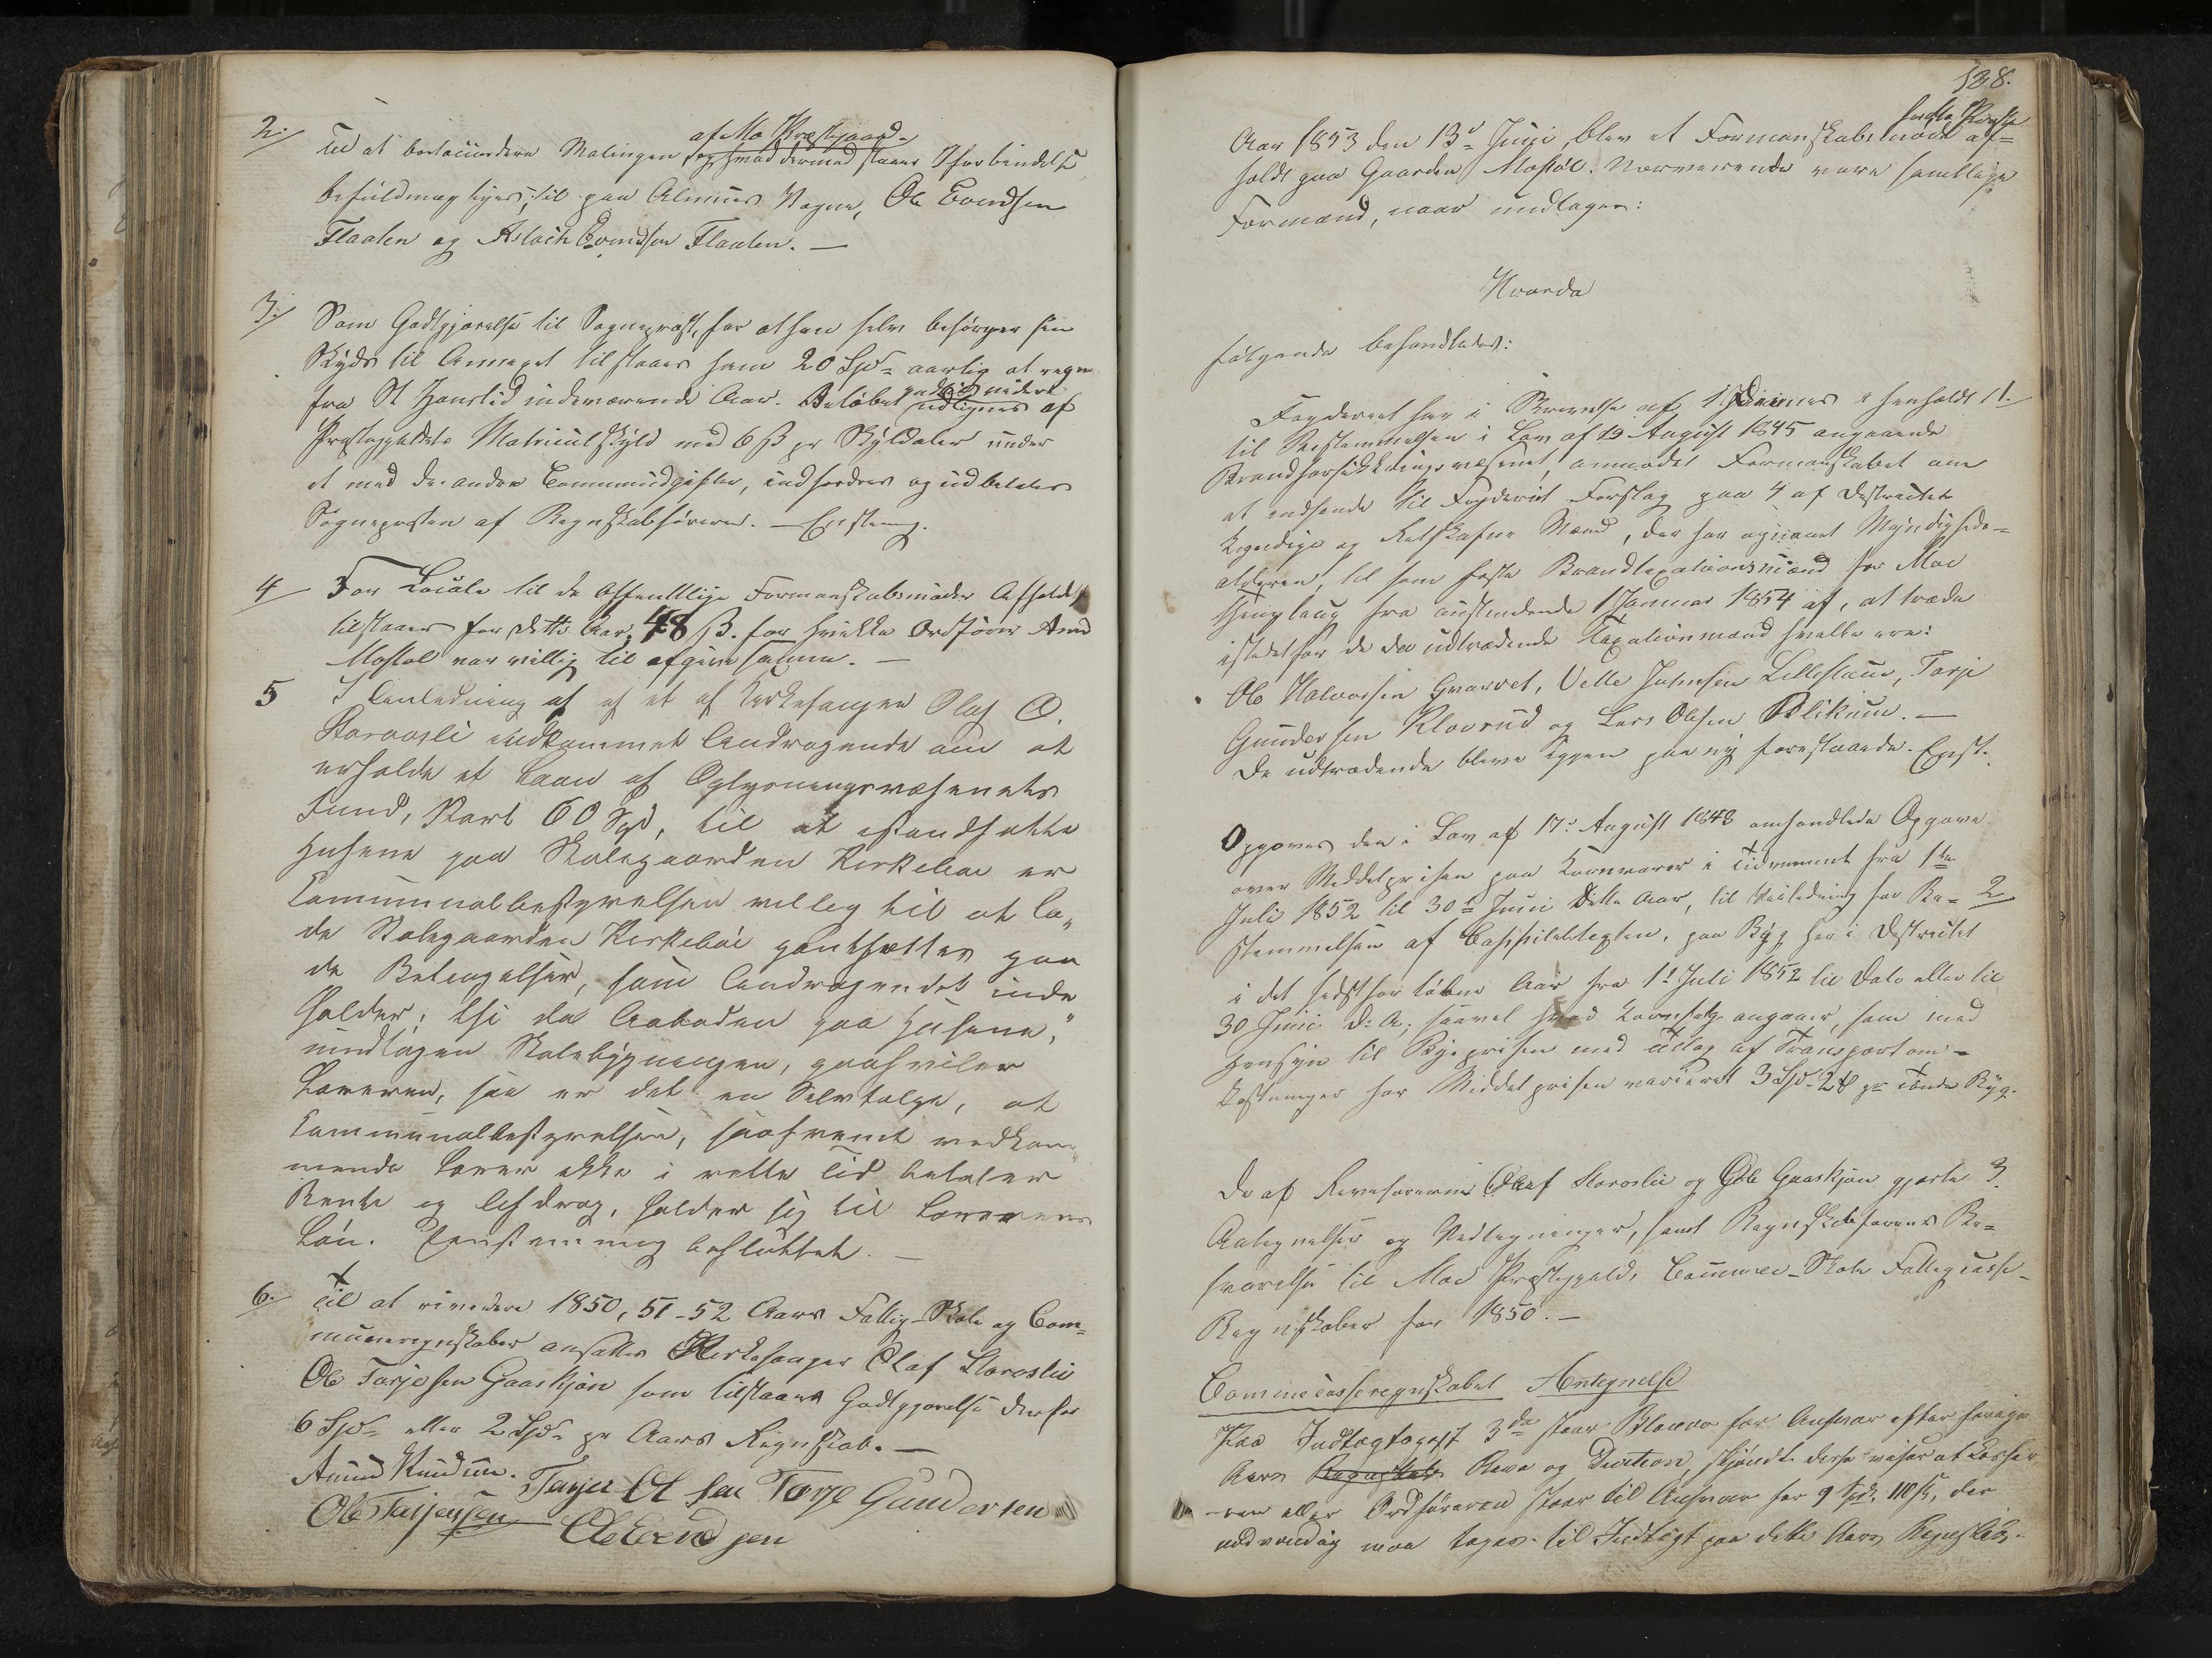 2./
af Mo Præstegaard
Til at bortaccordere Malingen og hvad dermed staaer i Forbindelse
befuldmægtiges, til paa Almues Vegne, Ole Evendsen
Flaaten og Aslach Evendsen Flaaten. —
3./ Som Godtgjørelse til Sognepræst, for at han selv besørger sin
Skyds til Annexet tilstaaes ham 20 Spd aarlig at regne
fra St Hanstid indeværende Aar. Beløbet udlignes af
Præstegjeldets Matriculskyld med 6 ß pr Skyldaler under
et med de andre Communeudgifter, indfordres og udbetales
Sognepræsten af Regnskabsføreren. — Enstemmig.
4 For Locale til de Offentlige Formandskabsmøders Afholdelse
tilstaaes for dette Aar, 48 ß. for hvilke Ordfører Amund
Mostøl var villig til afgive samme. —
5 I Anledning af et af Kirkesanger Olaf O.
Staroosli indkommet Andragende om at
erholde et Laan af Oplysningsvæsenets
Fund, stort 60 Spd, til at istandsætte
Husene paa Skolegaarden Kirkebøe er
Communalbestyrelsen villig til at la-
de Skolegaarden Kirkebøe pantsættes paa
de Betingelser, som Andragendet inde
holder; thi da Aaboden paa Husene,
undtagen Skolebygningen, paahviler
Læreren, saa er det en Selvfølge, at
Communalbestyrelsen, saafremt vedkom-
mende Lærer ikke i rette Tid betaler
Rente og Afdrag, holder sig til Lærerens
Løn. Eenstemmig besluttet. —
6./ Til at revidere 1850, 51-52 Aars Fattig- Skole og Com-
muneregnskaber ansattes Kirkesanger Olaf Storoslie
Ole Tarjesen Gaaskjøn som tilstaaes Godtgjørelse derfor
6 Spd eller 2 Spd pr Aars Regnskab. —
Amund Knudsen. Tarjer Olsen Torje Gundersen
Ole Tarjessen Ole Evendsen
138.
Aar 1853 den 13d Juni, blev et Formandskabsmøde af-
holdt paa Gaarden Mostøl. Nærværende vare samtlige
Formænd, naar undtages:
Hvorda
følgende behandledes:
Fogderiet har i Skrivelse af 1 Dennes i henhold 1./
til Bestemmelsen i Lov af 19 August 1845 angaaende
Brandforsikkringsvæsenet, anmodet Formandskabet om
at indsende til Fogderiet Forslag paa 4 af Districtets
kyndige og Retskafne Mænd, der har opnaaet Myndigheds-
alderen, til som faste Brandtaxationsmænd for Moe
Thinglaug fra anstundende 1 Januar 1854 af, at træde
istedetfor de da udtrædende Taxationsmænd hvilke ere:
Ole Halvorsen Gvarvet, Velle Johnsen Lillestaue, Tarje
Gundersen Klovrud og Lars Olsen Blikum. —
De udtrædende bleve igjen paa ny foreslaaede. Enst.
Opgaves den i Lov af 17d August 1848 omhandlede Opgave
over Middelprisen paa Kornvarer i Tidsrummet fra 1ste
Juli 1852 til 30d Juni dette Aar, til Veiledning for Be- 2
stemmelsen af Capitelstaxten, paa Byg her i Districtet
i det sidstforløbne Aar fra 1d Juli 1852 til Dato eller til
30 Juni d: A; saavel hvad Kornsalg angaaer, som med
Hensyn til Byeprisen med Tillæg af Transportom-
kostninger har Middelprisen varieret 3 Spd. 2 ß pr Tønde Byg.
De af Revisorerne Olaf Storoslie og Ole Gaaskjøn gjorte 3.
Antegnelser og Vedtegninger, samt Regnskabsførerens Be-
svarelse til Moe Præstegjelds Commune- Skole Fattigcasse-
Regnskaber for 1850. —
Communecasseregnskabet Antegnelse
Paa Indtægtspost 3de staar Blanco for Ansvar efter forrige
Aars Regnskab Reva og Decision, skjøndt disse viser at Casser-
ren eller Ordføreren staar til Ansvar for 9 Spd, 110 ß, der
nødvendig maa tages til Indtægt paa dette Aars Regnskab.